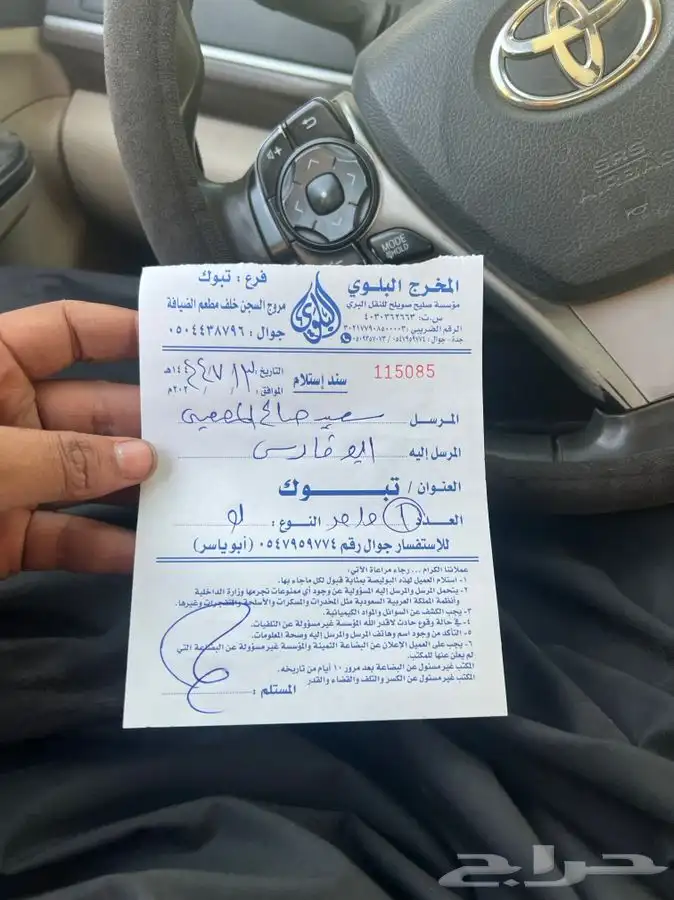 MODE
&HOLD
SRS
AIRBAG
المخرج البلوي
مؤسسة صليح صويلح للنقل البري
س.ت: ٤٠٣٠٣٦٢٦٦٣
الرقم الضريبي: ٣٠٢١٧٧٩٠٨٥٠٠٠٠٣
البلوي
فرع: تبوك
مروج السجن خلف مطعم الضيافة
جوال: ٠٥٠٤٤٣٨٧٩٦
115085
سند إستلام
التاريخ:
الموافق:
المرسل سعيد صالح
المرسل إليه ابو فارس
العنوان / تبوك
العدد ١ واحد النوع:
للإستفسار جوال رقم ٠٥٤٧٩٥٩٧٧٤ (أبو ياسر)
عملائنا الكرام ... رجاء مراعاة الآتي:
١- استلام العميل لهذه البوليصة بمثابة قبول لكل ماجاء بها.
٢- يتحمل المرسل والمرسل إليه المسؤولية عن وجود أي ممنوعات تجرمها وزارة الداخلية
وأنظمة المملكة العربية السعودية مثل المخدرات والمسكرات والأسلحة والمتفجرات وغيرها.
٣- يجب الكشف عن السوائل والمواد الكيميائية.
٤- في حالة وقوع حادث لاقدر الله المؤسسة غير مسؤولة عن التلفيات.
٥- التأكد من وجود اسم وهاتف المرسل والمرسل إليه وصحة المعلومات.
٦- يجب على العميل الإعلان عن البضاعة الثمينة والمؤسسة غير مسؤولة عن البضاعة التي
لم يعلن عنها للمكتب.
المكتب غير مسئول عن البضاعة بعد مرور ١٠ أيام من تاريخه.
المكتب غير مسئول عن الكسر والتلف والقضاء والقدر
المستلم:
حراج